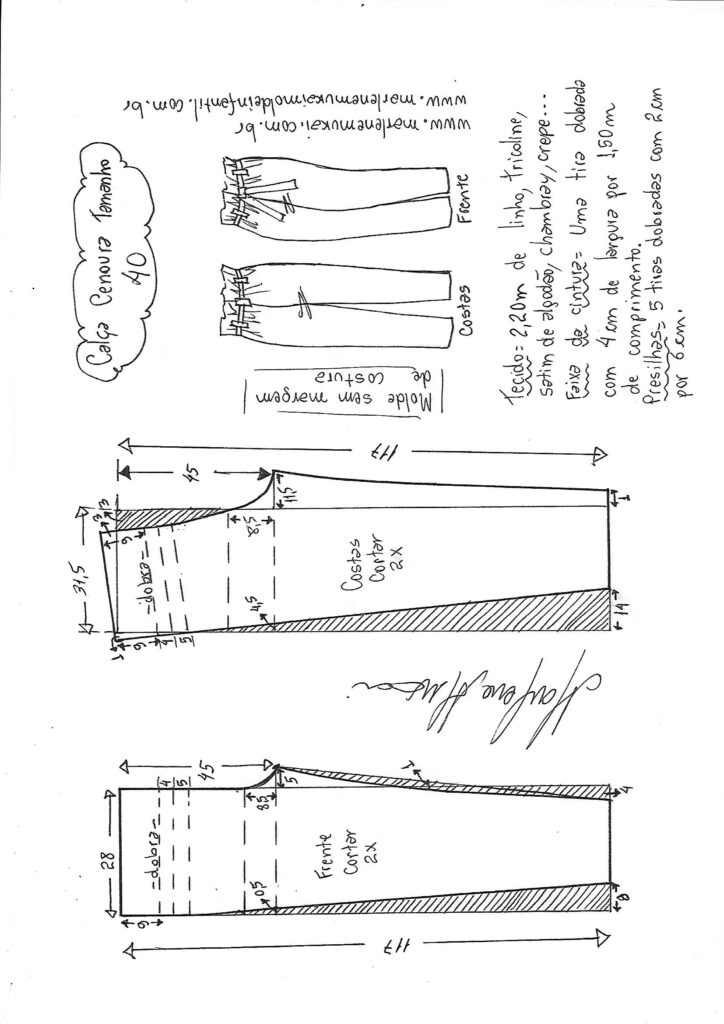 Calça Cenoura Tamanho
40
www.marlenemukai.com.br
www.marlenemukaimoldeinfantil.com.br
Costas
Frente
Molde sem margem
de costura
Tecido= 2,20m de linho, tricoline,
satim de algodão, chambray, crepe...
Faixa da cintura= Uma tira dobrada
com 4 cm de largura por 1,50m
de comprimento.
Presilhas= 5 tiras dobradas com 2 cm
por 6 cm.
117
45
3
3
31,5
9
-dobra-
8,5
11,5
1
Costas
Cortar
2x
4,5
1
9
4
5
14
Marlene Mukai
45
4
5
28
-dobra-
8,5
5
1
4
Frente
Cortar
2x
0,5
9
8
117